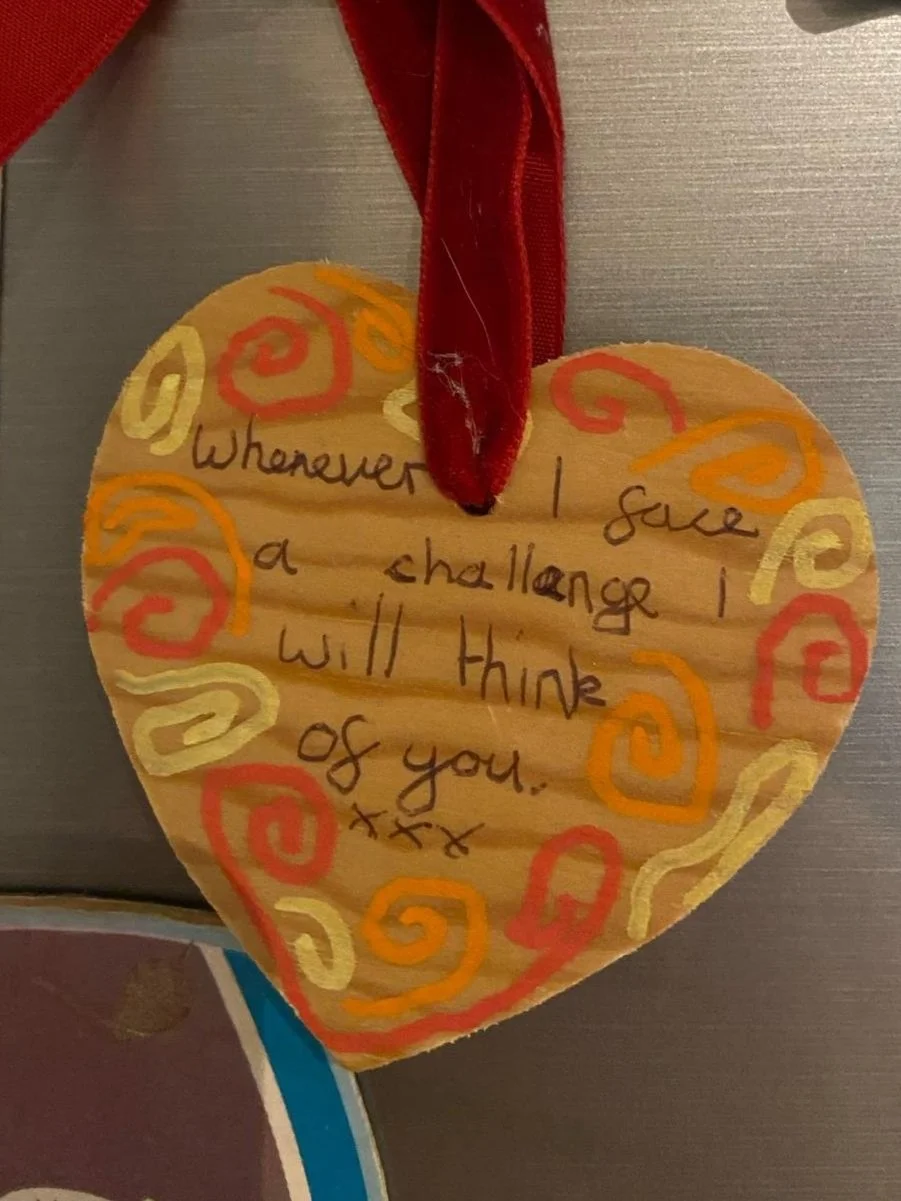 Whenever I face
a challenge I
will think
of you.
xxx